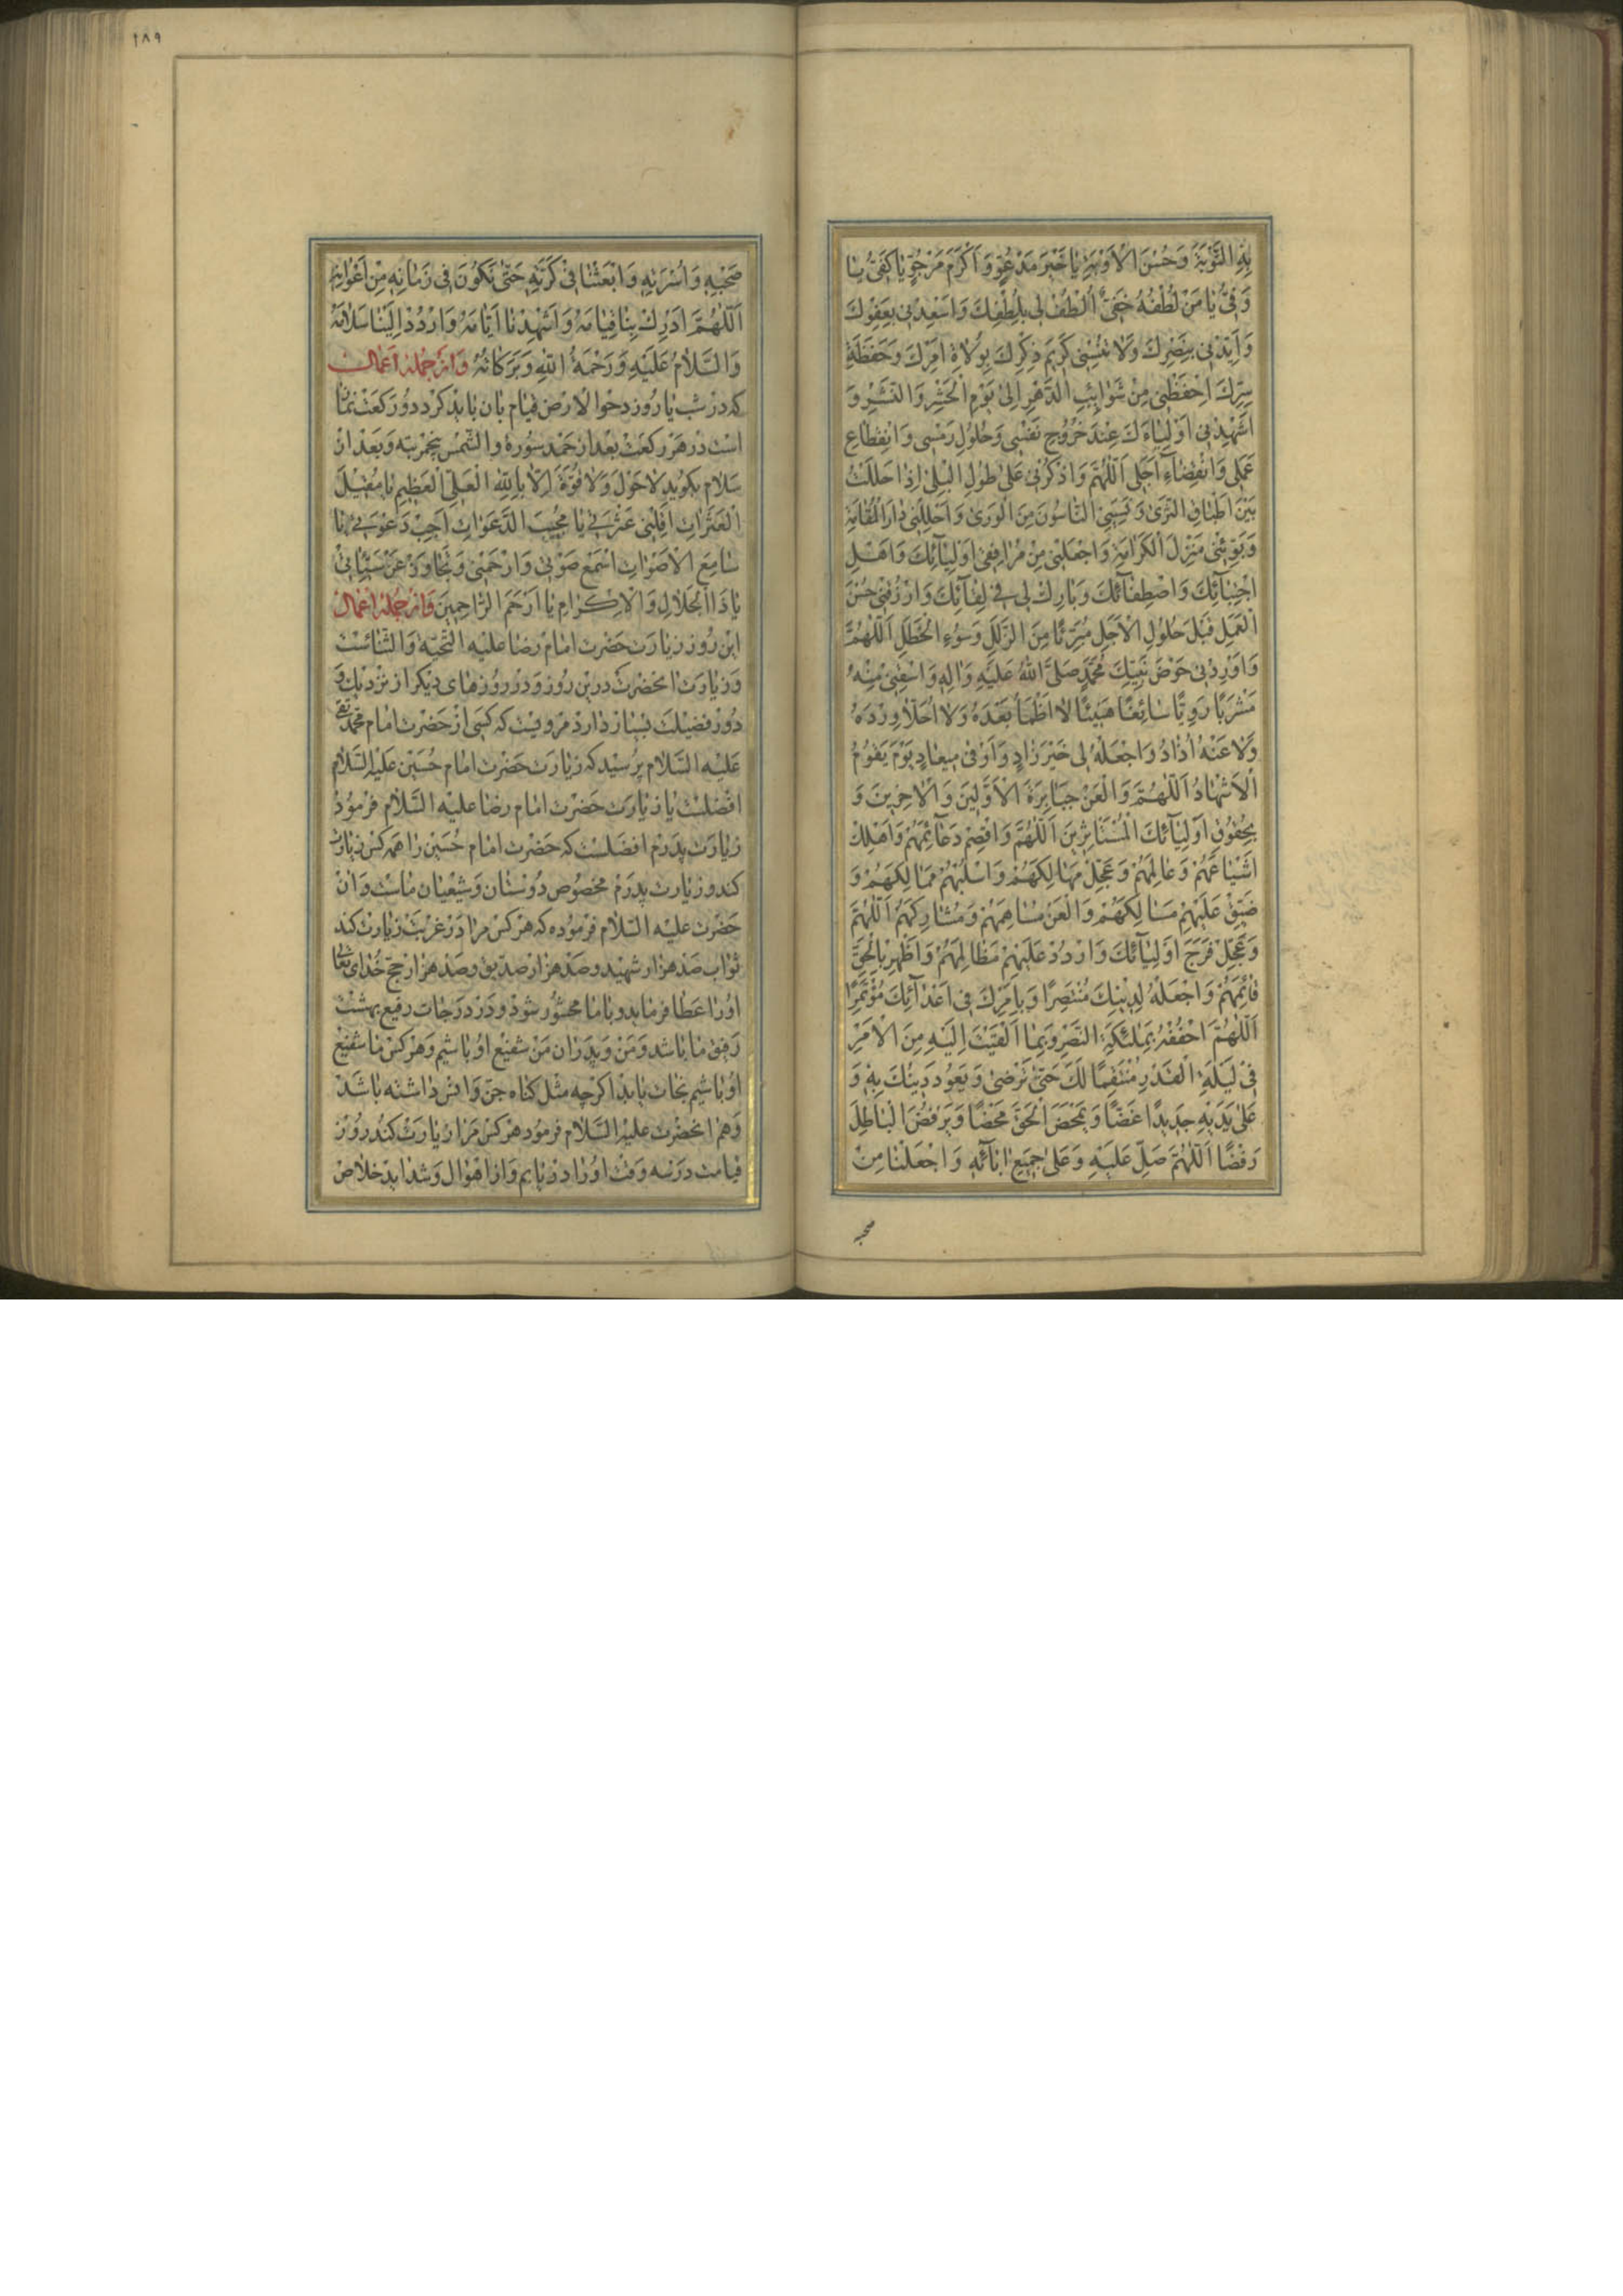 بِهِ التَّوْبَةَ وَحُسْنَ الْأَوْبَةِ يَا خَيْرَ مَدْعُوٍّ وَأَكْرَمَ مَرْجُوٍّ يَا كَفِيُّ يَا
وَفِيُّ يَا مَنْ لُطْفُهُ خَفِيٌّ اُلْطُفْ لِي بِلُطْفِكَ وَأَسْعِدْنِي بِعَفْوِكَ
وَأَيِّدْنِي بِنَصْرِكَ وَلَا تُنْسِنِي كَرِيمَ ذِكْرِكَ بِوُلَاةِ أَمْرِكَ وَحَفَظَةِ
سِرِّكَ اِحْفَظْنِي مِنْ شَوَائِبِ الدَّهْرِ إِلَى يَوْمِ الْحَشْرِ وَالنَّشْرِ وَ
أَشْهِدْنِي أَوْلِيَاءَكَ عِنْدَ خُرُوجِ نَفْسِي وَحُلُولِ رَمْسِي وَانْقِطَاعِ
عَمَلِي وَانْقِضَاءِ أَجَلِي اَللّٰهُمَّ وَاذْكُرْنِي عَلَى طُولِ الْبِلَى إِذَا حَلَلْتُ
بَيْنَ أَطْبَاقِ الثَّرَى وَنَسِيَنِيَ النَّاسُونَ مِنَ الْوَرَى وَأَحْلِلْنِي دَارَ الْمُقَامَةِ
وَبَوِّئْنِي مَنْزِلَ الْكَرَامَةِ وَاجْعَلْنِي مِنْ مُرَافِقِي أَوْلِيَائِكَ وَأَهْلِ
اجْتِبَائِكَ وَاصْطِفَائِكَ وَبَارِكْ لِي فِي لِقَائِكَ وَارْزُقْنِي حُسْنَ
الْعَمَلِ قَبْلَ حُلُولِ الْأَجَلِ مُبَرَّئًا مِنَ الزَّلَلِ وَسُوءِ الْخَطَلِ اَللّٰهُمَّ
وَأَوْرِدْنِي حَوْضَ نَبِيِّكَ مُحَمَّدٍ صَلَّى اللّٰهُ عَلَيْهِ وَآلِهِ وَاسْقِنِي مِنْهُ
مَشْرَبًا رَوِيًّا سَائِغًا هَنِيئًا لَا أَظْمَأُ بَعْدَهُ وَلَا أُحَلَّأُ وِرْدَهُ
وَلَا عَنْهُ أُذَادُ وَاجْعَلْهُ لِي خَيْرَ زَادٍ وَأَوْفَى مِيعَادٍ يَوْمَ يَقُومُ
الْأَشْهَادُ اَللّٰهُمَّ وَالْعَنْ جَبَابِرَةَ الْأَوَّلِينَ وَالْآخِرِينَ وَ
بِحُقُوقِ أَوْلِيَائِكَ الْمُسْتَأْثِرِينَ اَللّٰهُمَّ وَاقْصِمْ دَعَائِمَهُمْ وَأَهْلِكْ
أَشْيَاعَهُمْ وَعَامِلَهُمْ وَعَجِّلْ مَهَالِكَهُمْ وَاسْلُبْهُمْ مَمَالِكَهُمْ وَ
ضَيِّقْ عَلَيْهِمْ مَسَالِكَهُمْ وَالْعَنْ مُسَاهِمَهُمْ وَمُشَارِكَهُمْ اَللّٰهُمَّ
وَعَجِّلْ فَرَجَ أَوْلِيَائِكَ وَارْدُدْ عَلَيْهِمْ مَظَالِمَهُمْ وَأَظْهِرْ بِالْحَقِّ
قَائِمَهُمْ وَاجْعَلْهُ لِدِينِكَ مُنْتَصِرًا وَبِأَمْرِكَ فِي أَعْدَائِكَ مُؤْتَمِرًا
اَللّٰهُمَّ احْفُفْهُ بِمَلَائِكَةِ النَّصْرِ وَبِمَا أَلْقَيْتَ إِلَيْهِ مِنَ الْأَمْرِ
فِي لَيْلَةِ الْقَدْرِ مُنْتَقِمًا لَكَ حَتَّى تَرْضَى وَيَعُودَ دِينُكَ بِهِ وَ
عَلَى يَدَيْهِ جَدِيدًا غَضًّا وَيَمْحَضَ الْحَقَّ مَحْضًا وَيَرْفُضَ الْبَاطِلَ
رَفْضًا اَللّٰهُمَّ صَلِّ عَلَيْهِ وَعَلَى جَمِيعِ آبَائِهِ وَاجْعَلْنَا مِنْ
صحبه
١٨٩
صَحْبِهِ وَأُسْرَتِهِ وَابْعَثْنَا فِي كَرَّتِهِ حَتَّى نَكُونَ فِي زَمَانِهِ مِنْ أَعْوَانِهِ
اَللّٰهُمَّ أَدْرِكْ بِنَا قِيَامَهُ وَأَشْهِدْنَا أَيَّامَهُ وَارْدُدْ إِلَيْنَا سَلَامَهُ
وَالسَّلَامُ عَلَيْهِ وَرَحْمَةُ اللّٰهِ وَبَرَكَاتُهُ وَاز جُمله اَعمال
که در شب یا روز دحو الارض قیام بان باید کرد دو رکعت نماز
است در هر رکعت بعد از حمد سوره والشمس پنج مرتبه و بعد از
سلام بگوید لَا حَوْلَ وَلَا قُوَّةَ إِلَّا بِاللّٰهِ الْعَلِيِّ الْعَظِيمِ يَا مُقِيلَ
الْعَثَرَاتِ أَقِلْنِي عَثْرَتِي يَا مُجِيبَ الدَّعَوَاتِ أَجِبْ دَعْوَتِي يَا
سَامِعَ الْأَصْوَاتِ اسْمَعْ صَوْتِي وَارْحَمْنِي وَتَجَاوَزْ عَنْ سَيِّئَاتِي
يَا ذَا الْجَلَالِ وَالْإِكْرَامِ يَا أَرْحَمَ الرَّاحِمِينَ وَاز جُمله اعمال
این روز زیارت حضرت امام رضا علیه التحیة والثنائست
و زیارت انحضرت درین روز و در روزهای دیگر از نزدیک و
دور فضیلت بسیار دارد مرویست که کسی از حضرت امام محمد تقی
علیه السلام پرسید که زیارت حضرت امام حسین علیه السلام
افضلست یا زیارت حضرت امام رضا علیه السلام فرمود
زیارت پدرم افضلست که حضرت امام حسین را همه کس زیارت
کند و زیارت پدرم مخصوص دوستان و شیعیان ماست و آن
حضرت علیه السلام فرموده که هر کس مرا در غربت زیارت کند
ثواب صد هزار شهید و صد هزار صدیق و صد هزار حج خدای تعالی
او را عطا فرماید و با ما محشور شود و در درجات رفیع بهشت
رفیق ما باشد و من و پدران من شفیع او باشیم و هر کس ما شفیع
او باشیم نجات یابد اگرچه مثل گناه جن و انس داشته باشد
و هم انحضرت علیه السلام فرمود هر کس مرا زیارت کند روز
قیامت در سه وقت او را دریابم و از اهوال و شداید خلاص